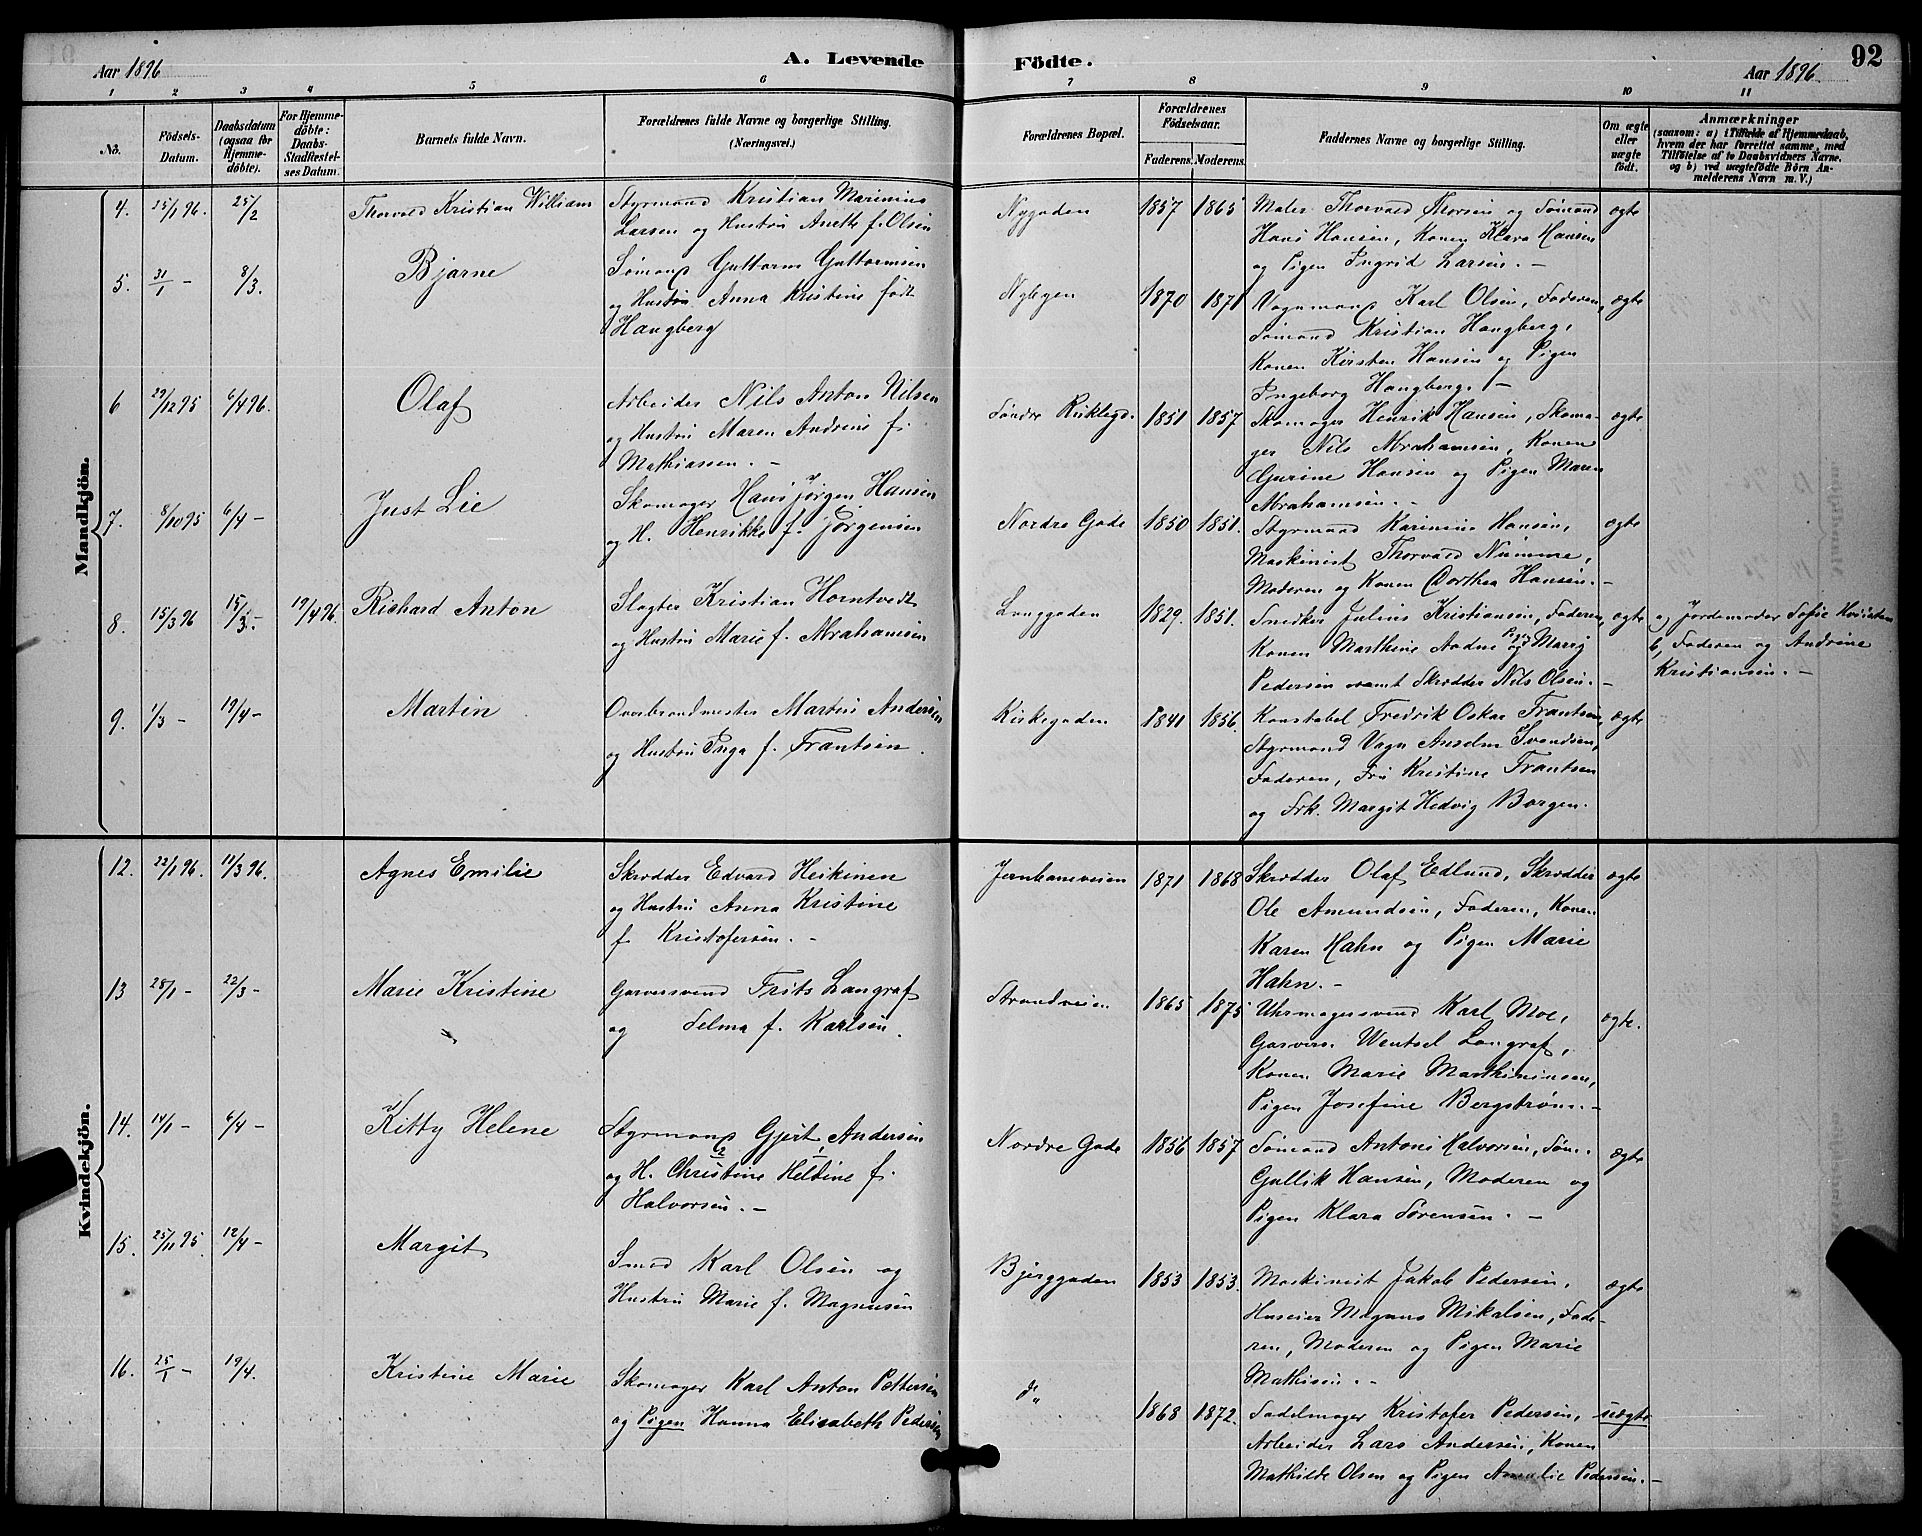 Aar 1896
A. Levende
Födte.
Aar 1896
92
1 2 3 4 5 6 7 8 9 10 11
No.
Födsels-Datum.
Daabsdatum (ogsaa for Hjemmedöbte).
For Hjemmedöbte: Daabs-Stadfestelses Datum.
Barnets fulde Navn.
Forældrenes fulde Navne og borgerlige Stilling. (Næringsvei.)
Forældrenes Bopæl.
Forældrenes Födselsaar.
Faderens. Moderens.
Faddernes Navne og borgerlige Stilling.
Om ægte eller uægte födt.
Anmærkninger
(saasom: a) i Tilfælde af Hjemmedaab,
hvem der har forrettet samme, med
Tilföielse af to Daabsvidners Navne,
og b) ved uægtefödte Börn Anmelderens Navn m. V.)
Mandkjön.
4. 25/1 96. 25/2 Thorvald Kristian William
Styrmand Kristian Marinius
Larsen og Hustru Anette f. Olsen
Nygaden 1857 1865
Maler Thorvald Thorsen og Sømand
Hans Hansen, Konen Klara Hansen
og Pigen Ingrid Larsen. –
ægte
5. 31/1 – 8/3. Bjarne
Sømand Guttorm Guttormsen
og Hustru Anna Kristine født
Haugberg
1870 1871
Vognmand Karl Olsen, Faderen,
Sømand Kristian Haugberg,
Konen Kirsten Hansen og Pigen
Ingeborg Haugberg. –
ægte
6 29/12 95 6/4 96. Olaf
Arbeider Nils Anton Nilsen
og Hustru Maren Andrine f.
Mathiassen. –
Søndre 1851 1857
Skomager Henrik Hansen, Skoma-
ger Nils Abrahamsen, Konen
Gurine Hansen og Pigen Maren
Abrahamsen. –
ægte
7. 8/10 95 6/4 – Just Lie
Skomager Hans Jørgen Hansen
og H. Henrikke f. Jørgensen
Nordre Gade 1850 1851.
Styrmand Karinius Hansen,
Maskinist Thorvald Numme,
Moderen og Konen Dorthea Hansen. –
ægte
8. 15/3 96 15/3 – 19/4 96. Richard Anton
Slagter Kristian Horntvedt
og Hustru Marie f. Abrahamsen
Langgaden 1829. 1851.
Snedker Julius Kristiansen, Faderen,
Konen Marthine Aadne og Pigen Marig
Pedersen samt Skrædder Nils Olsen. –
ægte
a, Jordemoder Sofie
b, Faderen og Andrine
Kristiansen. –
9. 1/3 – 19/4 – Martin
Overbrandmester Martin Andersen
og Hustru Inga f. Frantsen.
Kirkegaden 1841 1856.
Konstabel Fredrik Oskar Frantsen,
Styrmand Vagn Anselm Svendsen,
Faderen, Fru Kristine Frantsen
og Frk. Margit Hedvig Borgen.
ægte
Kvindekjön.
12. 22/1 96. 11/3 96. Agnes Emilie
Skrædder Edvard Heikinen
og Hustru Anna Kristine
f. Kristofersen. –
Jernbaneveien 1871 1868
Skrædder Olaf Edlund, Skrædder
Ole Amundsen, Faderen, Konen
Karen Hahn og Pigen Marie
Hahn. –
ægte
13 28/1 – 22/3 – Marie Kristine
Garversvend Frits Langraf
og Selma f. Karlsen.
Strandveien 1865 1875
Uhrmagersvend Karl Moe,
Garvers. Wentsel Langraf,
Konen Marie Marthiniusen,
Pigen Josefine Bergstrøm. –
ægte.
14. 14/1 – 6/4 – Kitty Helene
Styrmand Gjert Andersen
og H. Christine Heltine f.
Halvorsen. –
Nordre Gade 1856 1857
Sømand Antoni Halvorsen, Søm.
Gullik Hansen, Moderen og
Pigen Klara Sørensen. –
ægte
15. 25/11 95. 12/4 – Margit
Smed Karl Olsen og
Hustru Marie f. Magnusen
Bjerggaden 1853 1853.
Maskinist Jakob Pedersen,
Huseier Magnus Mikalsen, Fade-
ren, Moderen og Pigen Marie
Mathisen. –
ægte
16. 25/1 – 19/4. Kristine Marie
Skomager Karl Anton Pettersen
og Pigen Hanna Elisabeth Pedersen
d„ 1868 1872.
Sadelmager Kristofer Pedersen,
Arbeider Lars Andersen, Konen
Mathilde Olsen og Pigen Amalie Pedersen. –
uægte